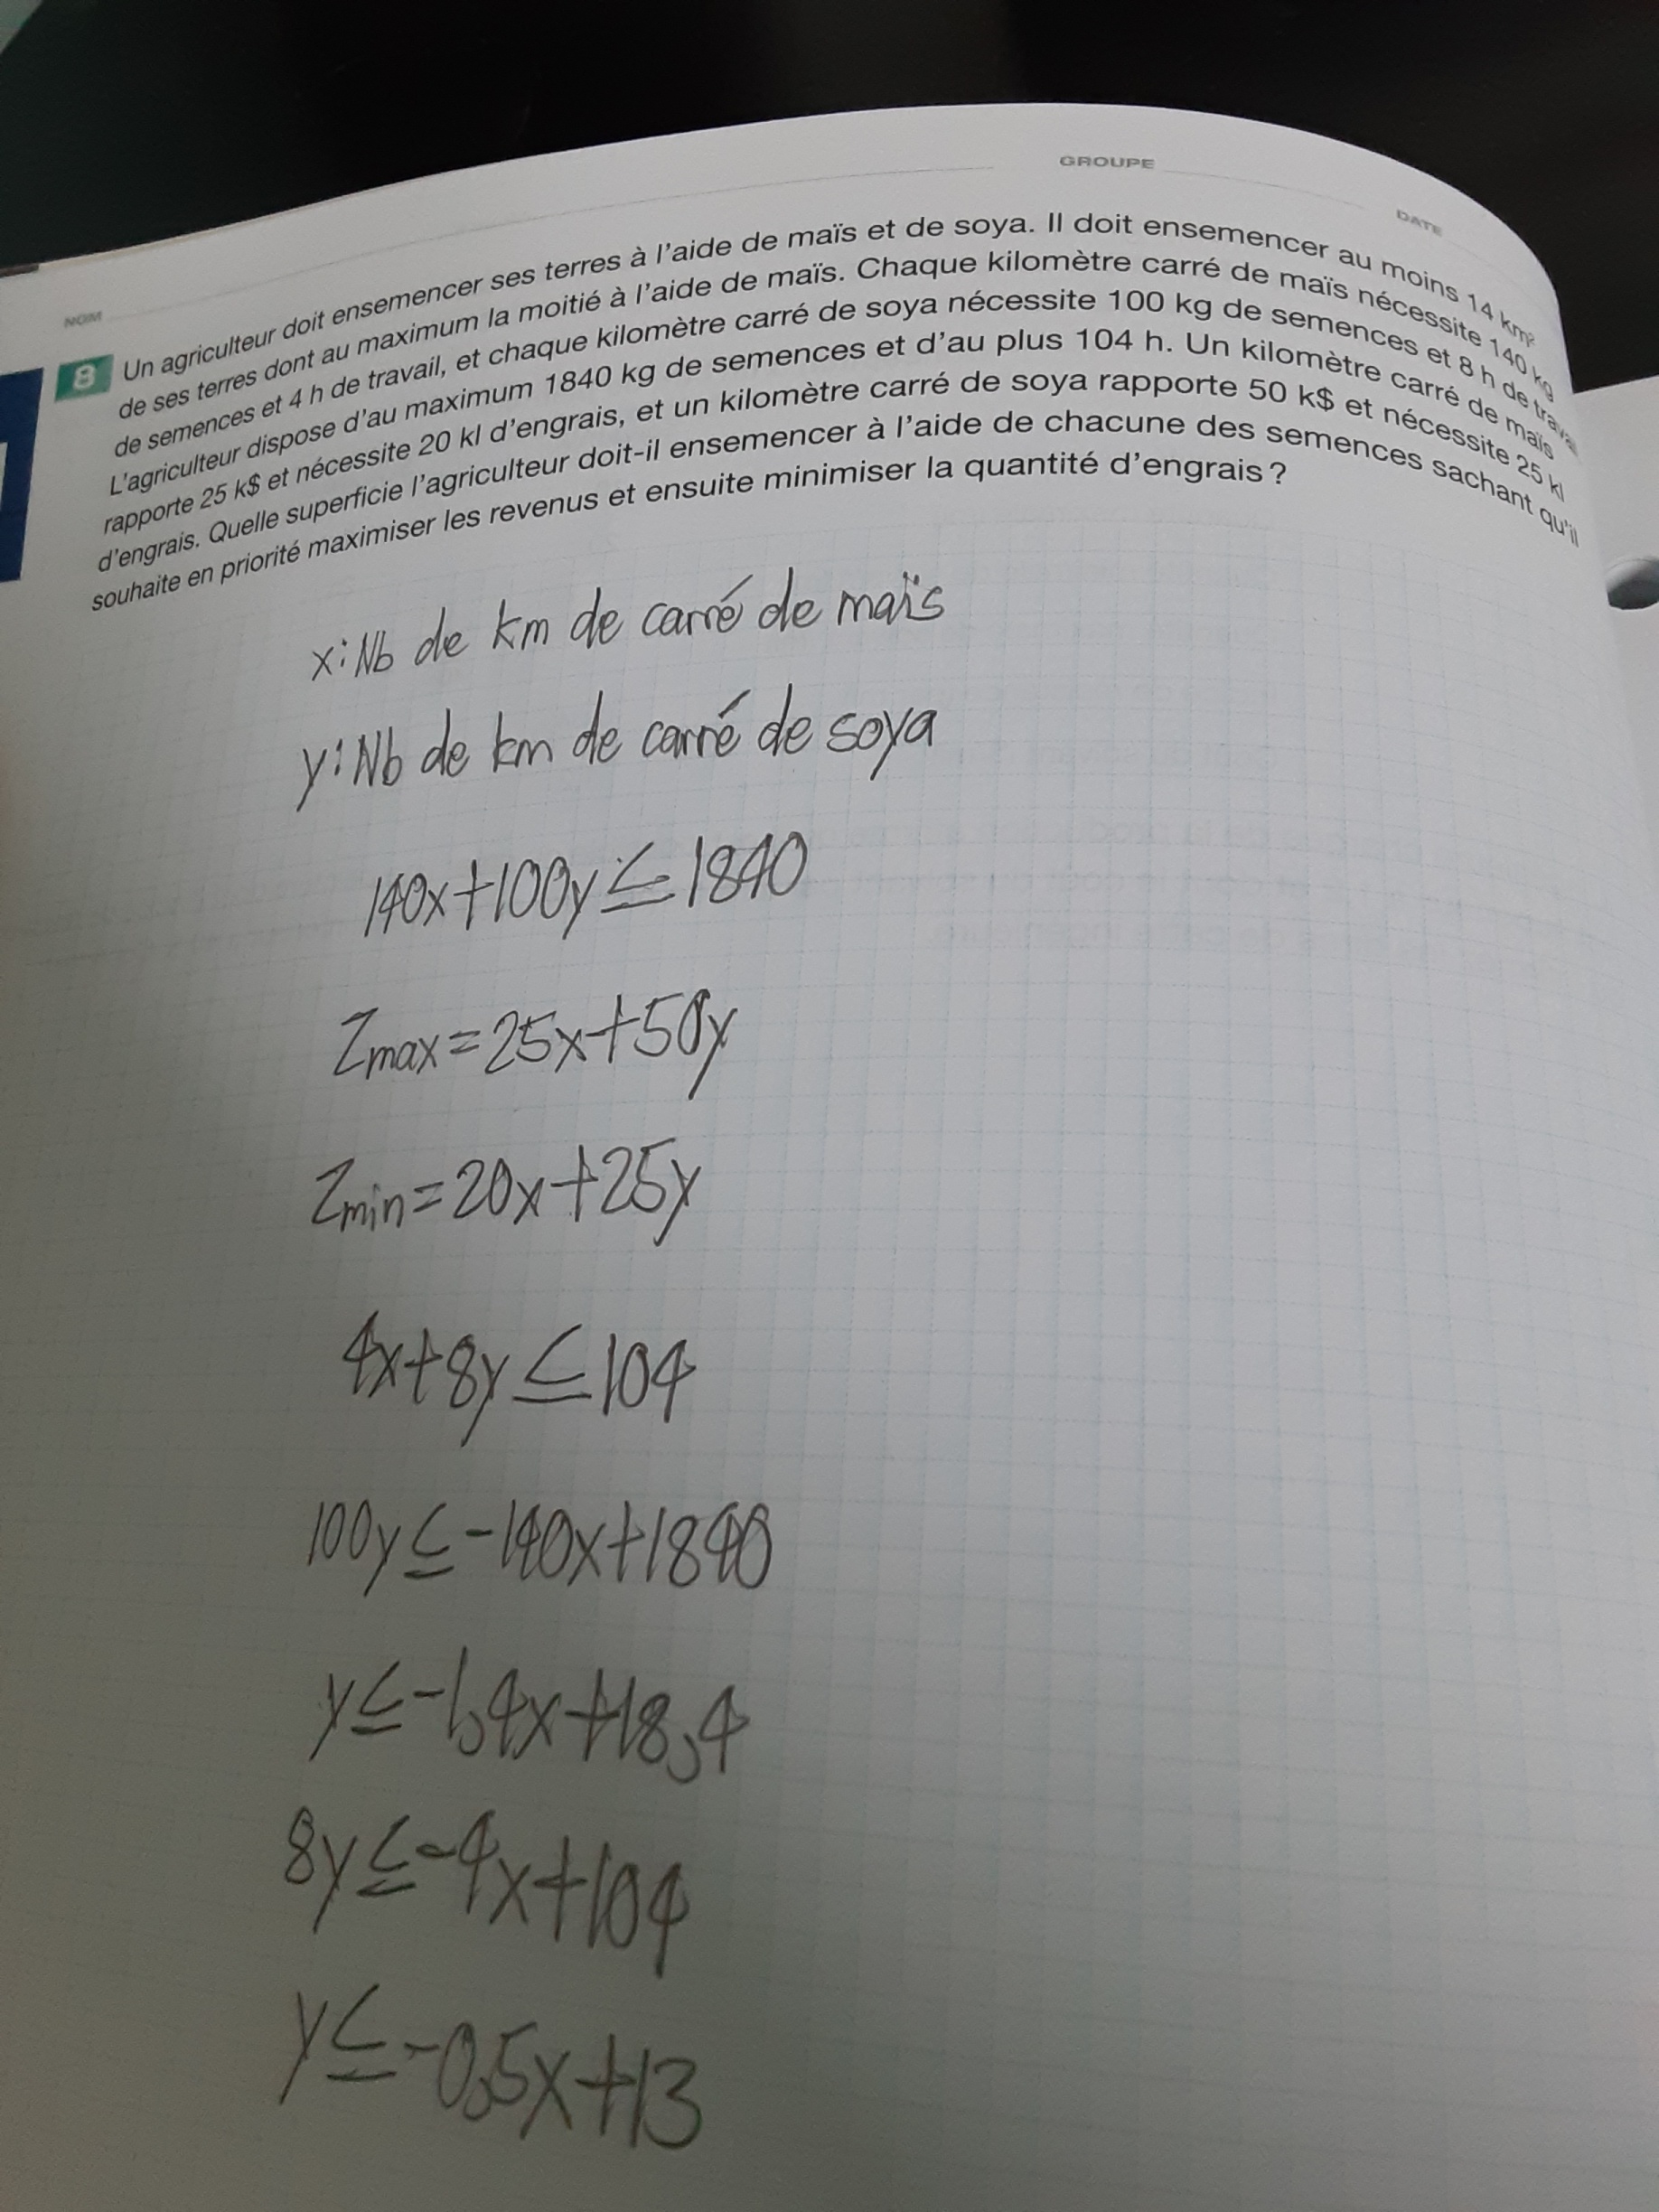 NOM GROUPE DATE
8 Un agriculteur doit ensemencer ses terres à l'aide de maïs et de soya. Il doit ensemencer au moins 14 km²
de ses terres dont au maximum la moitié à l'aide de maïs. Chaque kilomètre carré de maïs nécessite 140 kg
de semences et 4 h de travail, et chaque kilomètre carré de soya nécessite 100 kg de semences et 8 h de travail
L'agriculteur dispose d'au maximum 1840 kg de semences et d'au plus 104 h. Un kilomètre carré de maïs
rapporte 25 k$ et nécessite 20 kl d'engrais, et un kilomètre carré de soya rapporte 50 k$ et nécessite 25 kl
d'engrais. Quelle superficie l'agriculteur doit-il ensemencer à l'aide de chacune des semences sachant qu'il
souhaite en priorité maximiser les revenus et ensuite minimiser la quantité d'engrais ?
x: Nb de km de carré de maïs
y: Nb de km de carré de soya
140x+100y≤1840
Zmax=25x+50y
Zmin=20x+25y
4x+8y≤104
100y≤-140x+1840
y≤-1,4x+18,4
8y≤-4x+104
y≤-0,5x+13